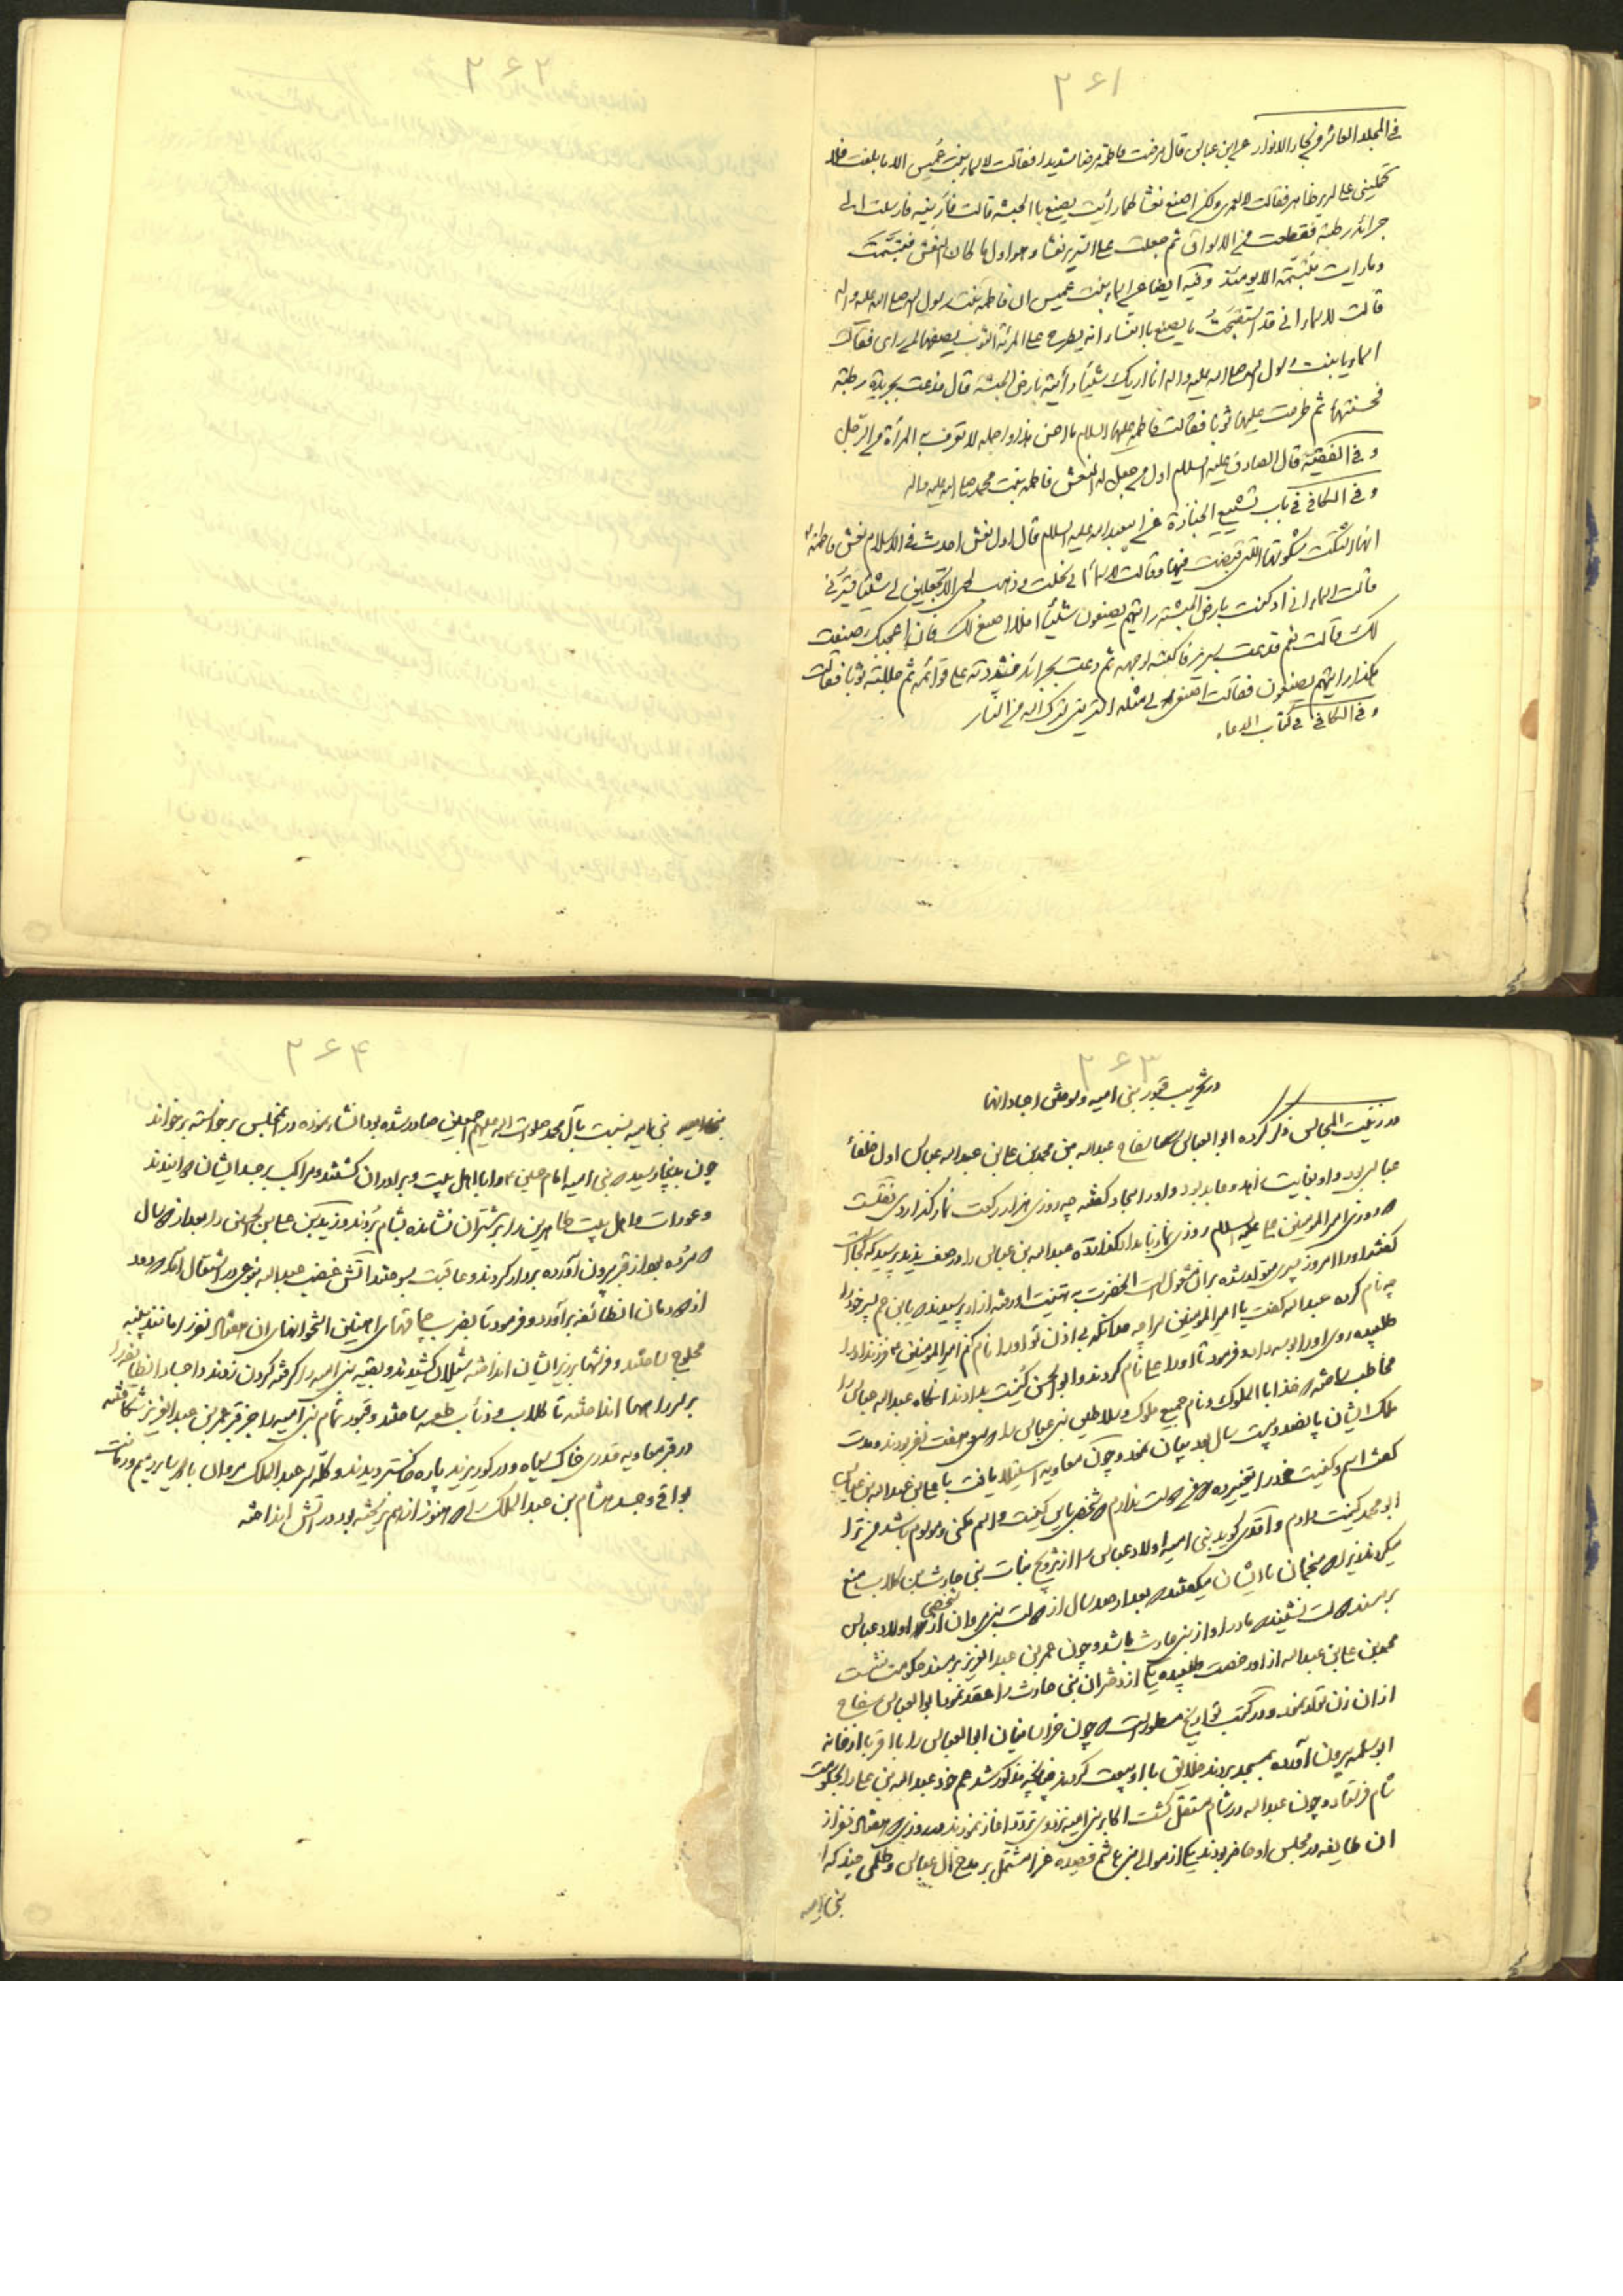 ۲۶۱
فی المجلد العاشر من بحار الانوار عن ابن عباس قال مرضت فاطمة مرضا شدیدا فقالت لاسماء بنت عُمیس الا ما بلغت فلا
تحملینی علی سریر ظاهر فقالت لا لعمری ولکن اصنع نعشا کما رأیت یصنع باالحبشه قالت فأرینیه فارسلت الی
جرائد رطبة فقطعت من الاسواق ثم جعلت علی السریر نعشا وهو اول ما کان النعش فتبسّمت
وما رایت متبسّمة الا یومئذ وفیه ایضا عن اسماء بنت عمیس ان فاطمة بنت رسول الله صلی الله علیه واله
قالت لاسماء انی قد استقبحتُ ما یصنع باالنساء انه یطرح علی المرئة الثوب فیصفها لمن رای فقالت
اسماء یا بنت رسول الله صلی الله علیه واله انا اریک شیئا رأیته بارض الحبشة قال فدعت بجریدة رطبة
فحسنتها ثم طرحت علیها ثوبا فقالت فاطمة علیها السلام ما احسن هذا واجمله لا تعرف به المرأة من الرجل
و فی الفقیه قال الصادق علیه السلام اول من جعل له النعش فاطمه بنت محمد صلی الله علیه واله
و فی الکافی فی باب تشییع الجنازة عن ابیعبدالله علیه السلام قال اول نعش احدث فی الاسلام نعش فاطمة
انها اشتکت شکوتها التی قبضت فیها وقالت لاسماء انی نحلت و ذهب لحمی الا تجعلین لی شیئا یسترنی
قالت اسماء انی اذ کنت بارض الحبشه رایتهم یصنعون شیئا افلا اصنع لک فان اعجبک صنعت
لک قالت نعم فدعت بسریر فاکبته لوجهه ثم دعت بجرائد فشددته علی قوائمه ثم جللته ثوبا فقالت
هکذا رایتهم یصنعون فقالت اصنعی لی مثله استرینی سترک الله من النار
و فی الکافی فی کتاب الدعاء
۲۶۲
۲۶۳
در تخریب قبور بنی امیه و سوختن اجساد انها
در زینت المجالس ذکر کرده ابو العباس سفاح عبدالله بن محمد بن علی بن عبدالله عباس اول خلفاء
عباس بود و او بغایت زاهد و عابد بود و او را سجاد گفتند چه روزی هزار رکعت نماز گذاردی نقلست
که روزی امیرالمومنین علی علیه السلام روزی نماز بامداد گذارده عبدالله بن عباس را در صف ندید پرسید که کجاست
گفتند او را امروز پسری متولد شده بران مشغول است آنحضرت به تهنیت او رفته از او پرسیدند یا بن عم پسر خود را
چه نام کرده عبدالله گفت یا امیرالمومنین مرا چه حد آنکه بی اذن تو او را نام کنم امیرالمومنین ع فرزند او را
طلبیده روی او را بوسه داد و فرمود تا او را علی نام کردند و ابوالحسن کنیت بدادند آنگاه عبدالله عباس را
مخاطب ساخته که خذ ابا الملوک و نام جمیع ملوک و سلاطین بنی عباس را که سی و هفت نفر بودند و مدت
ملک ایشان پانصد و بیست سال بود بیان نمود و چون معاویه استیلا یافت با علی بن عبدالله بن عباس
گفت اسم و کنیت خود را تغییر ده که من دوست ندارم که شخصی باین کنیت و اسم مکنی و موسوم باشد من ترا
ابو محمد کنیت دادم و اقدی گوید بنی امیه اولاد عباس را از تزویج بنات بنی حارث بن کلاب منع
میکردند زیرا که منجمان با ایشان میگفتند که بعد از صد سال از دولت بنی مروان شخصی از اولاد عباس
بر مسند دولت نشیند که مادر او از بنی حارث باشد و چون عمر بن عبدالعزیز بر مسند حکومت نشست
محمد بن علی بن عبدالله از او رخصت طلبیده یکی از دختران بنی حارث را عقد نمود ابو العباس سفاح
از ان زن تولد نمود و در کتب تواریخ مسطور است که چون خراسانیان ابا العباس را با اقربا از خانه
ابو سلمه بیرون آورده بمسجد بردند خلایق با او بیعت کردند چنانچه مذکور شد عم خود عبدالله بن علی را بحکومت
شام فرستاد و چون عبدالله در شام مستقل گشت اکابر بنی امیه نزد وی تردد آغاز نمودند و روزی که هفتاد نفر از
ان طایفه در مجلس او حاضر بودند یکی از موالی بنی هاشم قصیده غرا مشتمل بر مدح ال عباس و ظلمی چند که از
بنی امیه
۲۶۴
بنی امیه نسبت بآل محمد صلوات الله علیهم اجمعین صادر شده بود انشاء نموده در انمجلس برخواسته برخواند
چون بدینجا رسید که بنی امیه امام حسین ع را با اهل بیت و برادران کشتند و مراکب بر جسد ایشان دوانیدند
و عورات و اهل بیت طاهرین را بر شتران نشانده بشام بردند و زید بن علی بن الحسین را بعد از سال
که مرده بود از قبر بیرون آورده بردار کردند و عاقبت بسوختند آتش غضب عبدالله بنوعی در اشتعال آمد که دود
از دودمان انطائفه برآورد و فرمود تا بضرب چماقهای آهنین استخوانهای ان هفتاد نفر را مانند پنبه
محلوج ساختند و فرشها بر زبر ایشان انداخته شیلان کشیدند و بقیه بنی امیه را گرفته گردن زدند و اجساد انطایفه را
بر سر راهها انداختند تا کلاب و ذئاب طعمه ساختند و قبور تمام بنی امیه را جز قبر عمر بن عبدالعزیز شکافتند
در قبر معاویه قدری خاک سیاه و در گور یزید پاره خاکستر دیدند و کله سر عبدالملک مروان با
بواقی و جسد هشام بن عبدالملک را که هنوز از هم نریخته بود در آتش انداختند